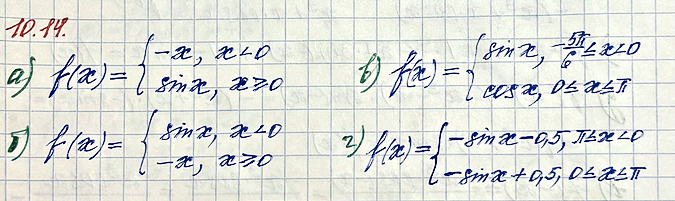 10.14.
а) f(x) = { -x, x<0
sinx, x≥0
б) f(x) = { sinx, x<0
-x, x≥0
в) f(x) = { sinx, -5π/6 ≤ x<0
cosx, 0≤x≤π
г) f(x) = { -sinx-0,5, π≤x<0
-sinx+0,5, 0≤x≤π